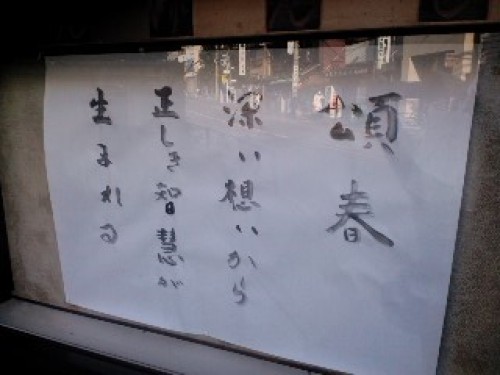 頌春
深い想いから
正しき智慧が
生まれる